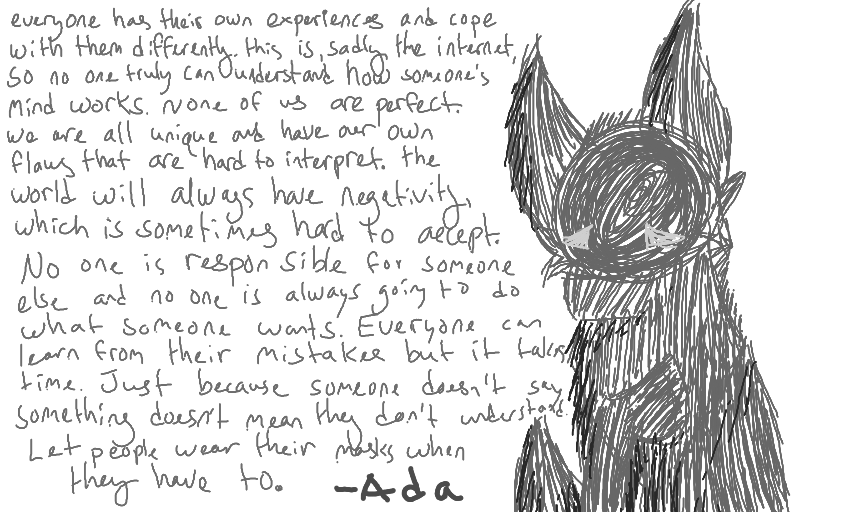 everyone has their own experiences and cope
with them differently. this is, sadly, the internet,
so no one truly can understand how someone's
mind works. none of us are perfect.
we are all unique and have our own
flaws that are hard to interpret. the
world will always have negetivity,
which is sometimes hard to accept.
No one is responsible for someone
else and no one is always going to do
what someone wants. Everyone can
learn from their mistakes but it takes
time. Just because someone doesn't say
something doesn't mean they don't understand.
Let people wear their masks when
they have to. -Ada